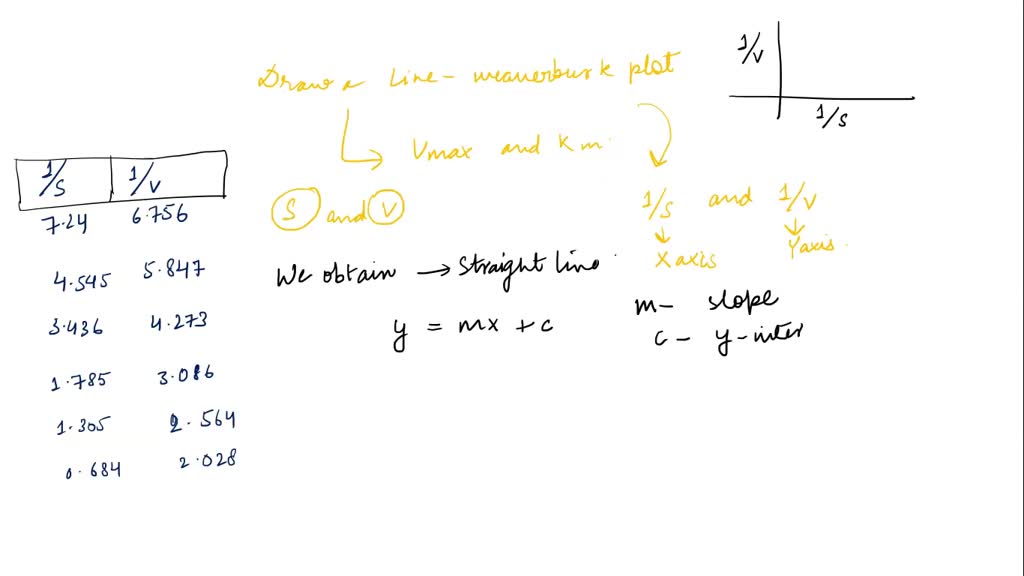 Draw a Line-weaverburk plot
Vmax and Km.
S and V
1/S and 1/V
X axis Y axis.
We obtain → Straight line.
y = mx + c
m - slope
c - y-inter
1/V
1/S
1/S 1/V
7.24 6.756
4.545 5.847
3.436 4.273
1.785 3.086
1.305 2.564
0.684 2.028